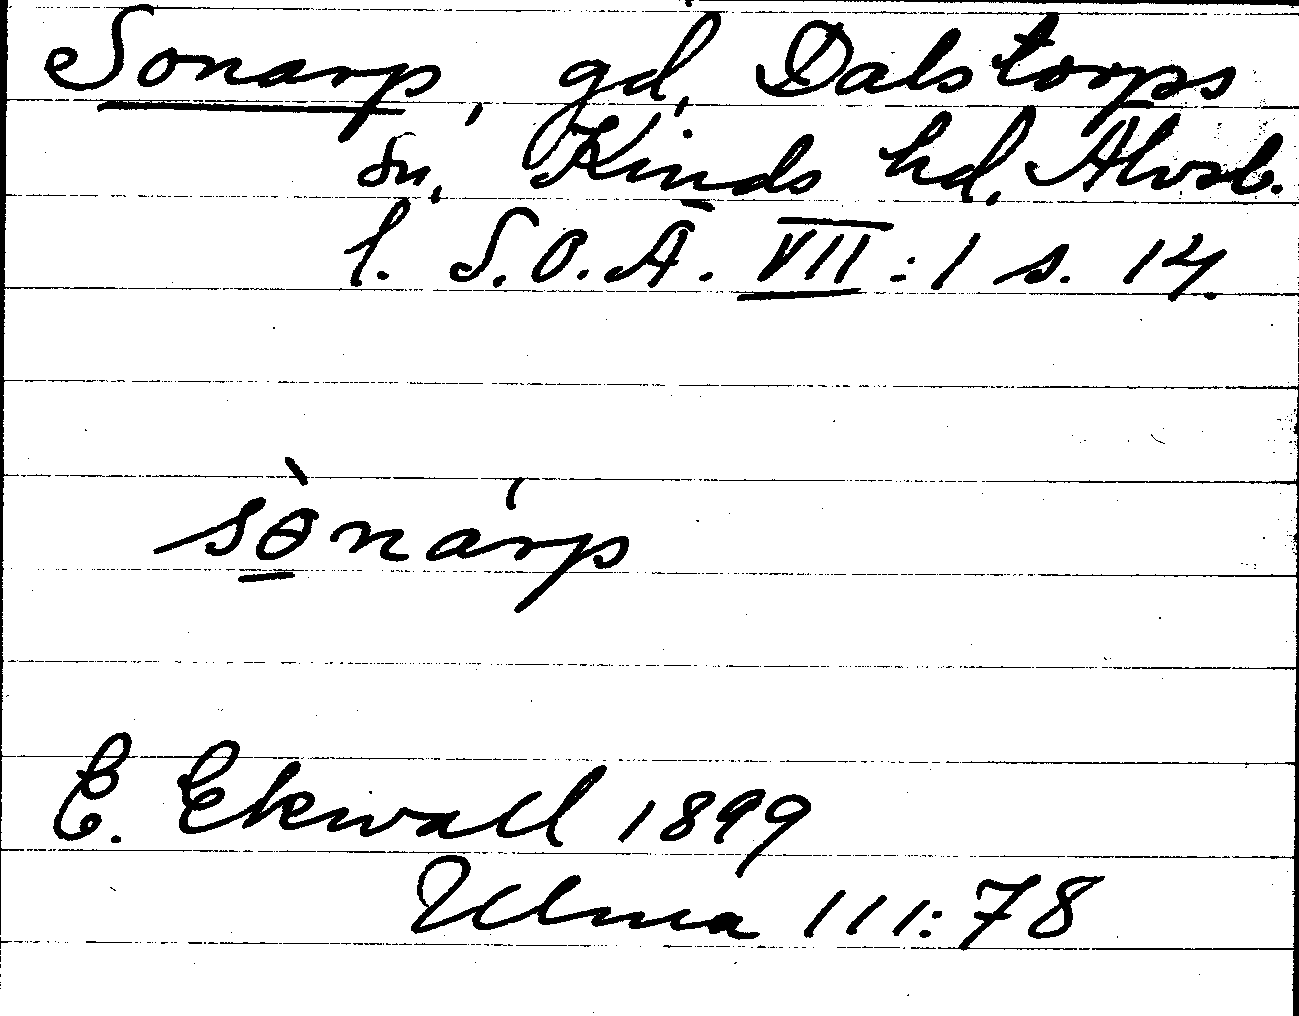 Sonarp, gd, Dalstorps
sn, Kinds hd, Älvsb.
l. S.O.Ä. VII:1 s. 14.
sɵ̀nárp
E. Ekwall 1899
Ulma 111:78